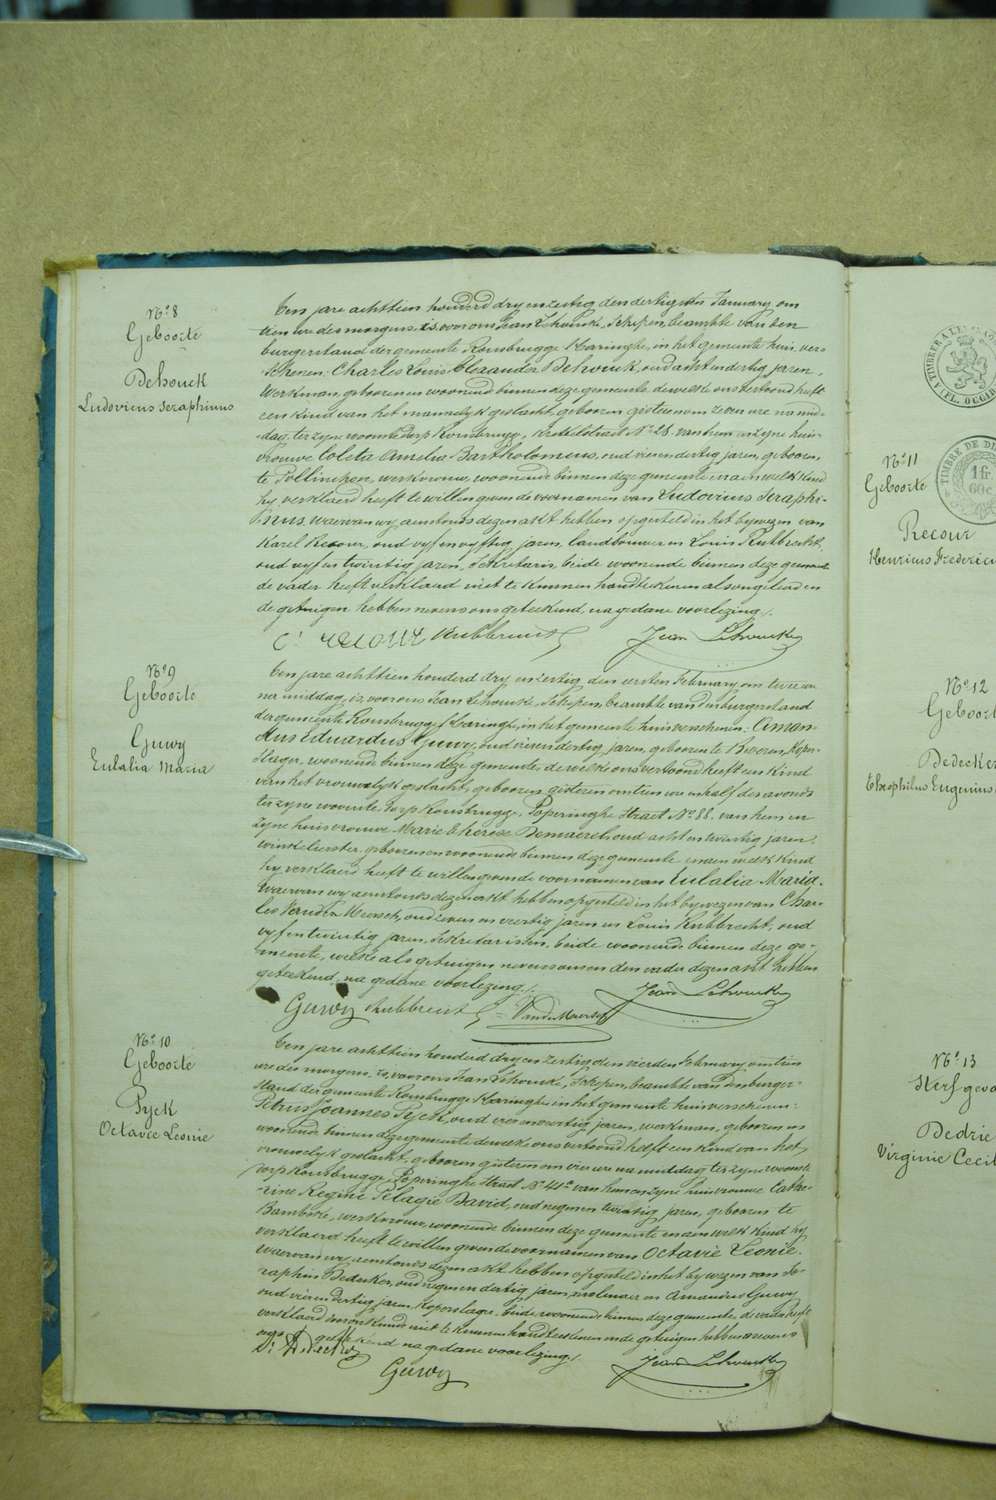 N° 8
Geboorte
Dehouck
Ludovicus Seraphinus
Ten jare achttien honderd dry en zestig, den dertigsten January, om
tien ure des morgens, is voor ons Jean Lehoucke, Schepen, beambte van den
burgerstand der gemeente Rousbrugge Haringhe, in het gemeente huis, vers-
schenen: Charles Louis Alexander Dehouck, oud acht en dertig jaren,
Werkman, geboren en woonende binnen deze gemeente dewelke ons vertoond heeft
een kind van het mannelyk geslacht, geboren gisteren om zeven ure namid-
dag, ter zyne woonste Dorp Rousbrugge, straat N° 28 van hem en zyne huis-
vrouwe Coleta Amelia Bartholomeus, oud vier en dertig jaren, geboren
te Pollinchove, werkvrouw, woonende binnen deze gemeente en aen welk kind
hy verklaerd heeft te willen geven de voornamen van Ludovicus Seraphi-
nus, waervan wy aenstonds dezen akt hebben opgesteld in het bywezen van
Karel Recour, oud vyf en vyftig jaren, landbouwer en Louis Rubbrecht,
oud vyf en twintig jaren, Sekretaris, beide woonende binnen deze gemeente
de vader heeft verklaerd niet te kunnen handteekenen als ongeleerd en
de getuigen hebben nevens ons geteekend, na gedane voorlezing.
C. recour Rubbrecht Jean Lehoucke
N° 9
Geboorte
Guwy
Eulalia Maria
Ten jare achttien honderd dry en zestig, den eersten February, om twee uren
na middag, is voor ons Jean Lehoucke, Schepen, beambte van den burgerstand
der gemeente Rousbrugge Haringhe, in het gemeente huis verschenen: Aman-
dus Eduardus Guwy, oud vier en dertig jaren, geboren te Beveren, koper-
slager, woonende binnen deze gemeente, dewelke ons vertoond heeft een kind
van het vrouwelyk geslacht, geboren gisteren om tien ure en half des avonds
ter zyne woonste, Dorp Rousbrugge, Poperinghe Straet N° 88, van hem en
zyne huisvrouwe Marie Thérèse Demaerel, oud acht en twintig jaren,
winkelierster, geboren en woonende binnen deze gemeente en aen welk kind
hy verklaerd heeft te willen geven de voornamen van Eulalia Maria.
Waervan wy aenstonds dezen akt hebben opgesteld in het bywezen van Char-
les Vander Meersch, oud zeven en veertig jaren en Louis Rubbrecht, oud
vyf en twintig jaren, Sekretarissen, beide woonende binnen deze ge-
meente, welke als getuigen nevens ons en den vader dezen akt hebben
geteekend, na gedane voorlezing.
Guwy Rubbrecht VanderMeersch Jean Lehoucke
N° 10
Geboorte
Pyck
Octavie Leonie
Ten jare achttien honderd dry en zestig, den vierden February, om tien
ure des morgens, is voor ons Jean Lehoucke, Schepen, beambte van den burger-
stand der gemeente Rousbrugge Haringhe in het gemeente huis verschenen:
Petrus Joannes Pyck, oud vier en veertig jaren, werkman, geboren en
woonende binnen deze gemeente dewelke ons vertoond heeft een kind van het
vrouwelyk geslacht, geboren gisteren om vier ure na middag ter zyne woonste
dorp Rousbrugge, Poperinghe Straet N° 41 van hem en zyne huisvrouwe Cathe-
rine Regine Pelagie David, oud negen en twintig jaren, geboren te
Bambeke, werkvrouw, woonende binnen deze gemeente en aen welk kind hy
verklaerd heeft te willen geven de voornamen van Octavie Leonie.
Waervan wy aenstonds dezen akt hebben opgesteld in het bywezen van Se-
raphin Dedecker, oud negen en dertig jaren, molenaer en Amandus Guwy
oud vier en dertig jaren, koperslager, beide woonende binnen deze gemeente, de vader heeft
verklaerd niet te kunnen handteekenen en de getuigen hebben nevens
ons geteekend na gedane voorlezing.
Guwy Jean Lehoucke
TIMBRE DE DI
1 fr
60c
N° 11
Geboorte
Recour
Henricus Frederic
N° 12
Geboort
Dedecker
Theophilus Eugenius
N° 13
Sterfgeva
Dedrie
Virginie Cecil